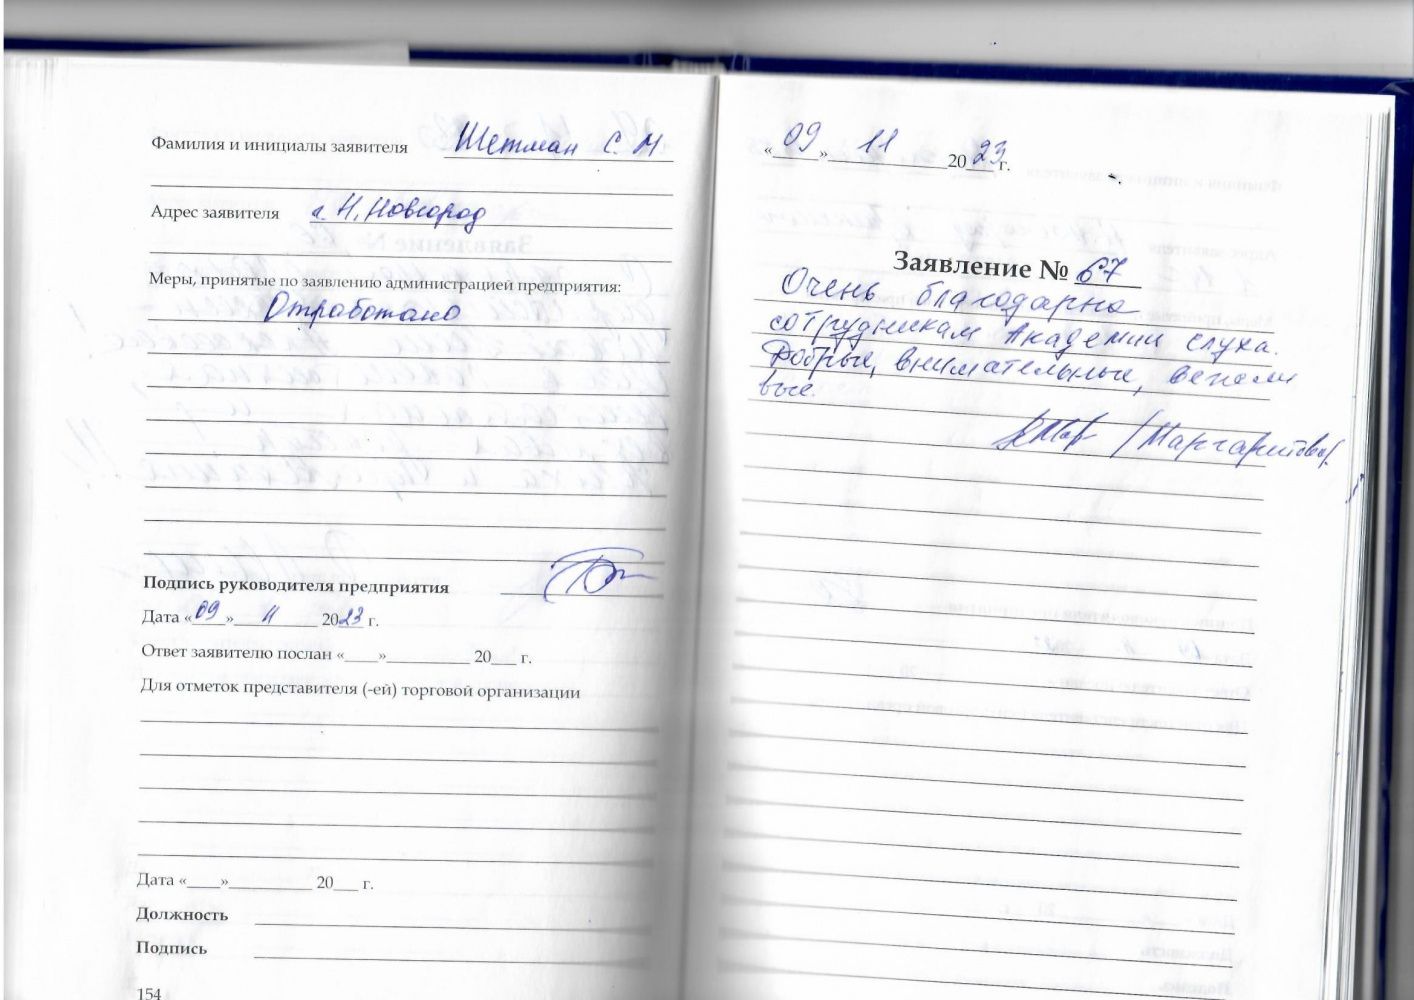 Фамилия и инициалы заявителя Шетман С. М
Адрес заявителя г. Н. Новгород
Меры, принятые по заявлению администрацией предприятия:
Отработано
Подпись руководителя предприятия
Дата «09» 11 2023 г.
Ответ заявителю послан «____»__________ 20___ г.
Для отметок представителя (-ей) торговой организации
Дата «____»__________ 20___ г.
Должность
Подпись
154
«09» 11 2023 г.
Заявление № 67
Очень благодарна
сотрудникам Академии слуха.
Добрые, внимательные, вежли
вые.
/Маргаритова/